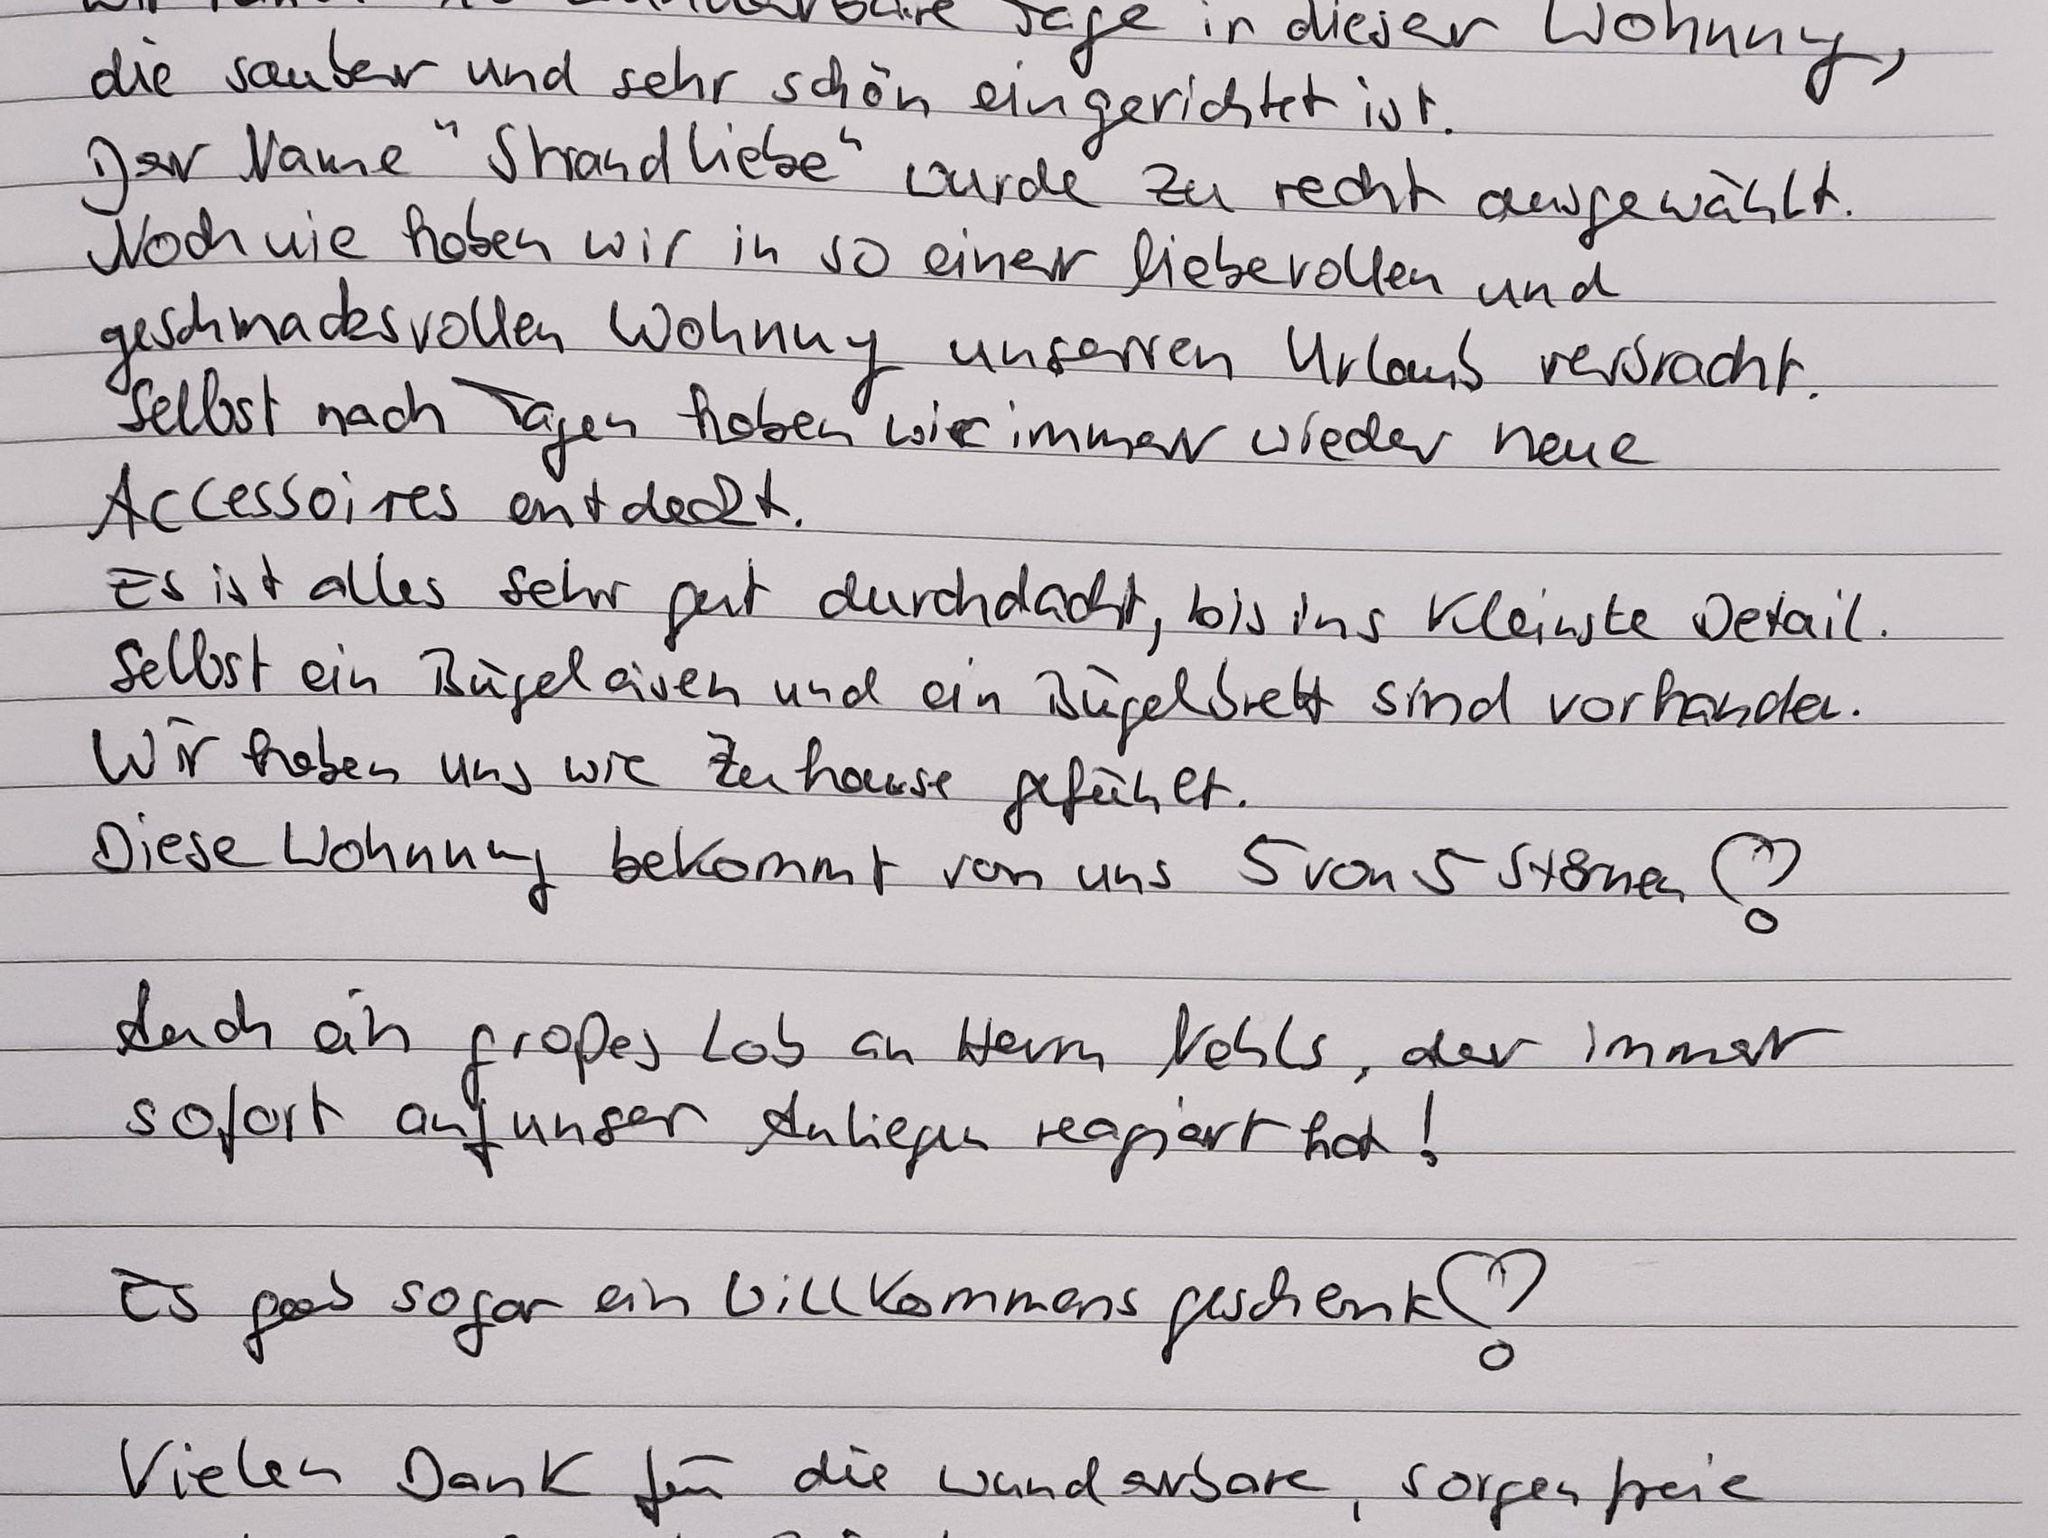 wunderbare Tage in dieser Wohnung,
die sauber und sehr schön eingerichtet ist.
Der Name "Strandliebe" wurde zu recht ausgewählt.
Noch nie haben wir in so einer liebevollen und
geschmacksvollen Wohnung unseren Urlaub verbracht.
Selbst nach Tagen haben wir immer wieder neue
Accessoires entdeckt.
Es ist alles sehr gut durchdacht, bis ins kleinste Detail.
Selbst ein Bügeleisen und ein Bügelbrett sind vorhanden.
Wir haben uns wie Zuhause gefühlt.
Diese Wohnung bekommt von uns 5 von 5 Sternen
Auch ein großes Lob an Herrn Nehls, der immer
sofort auf unser Anliegen reagiert hat!
Es gab sogar ein Willkommensgeschenk
Vielen Dank für die wunderbare, sorgenfreie